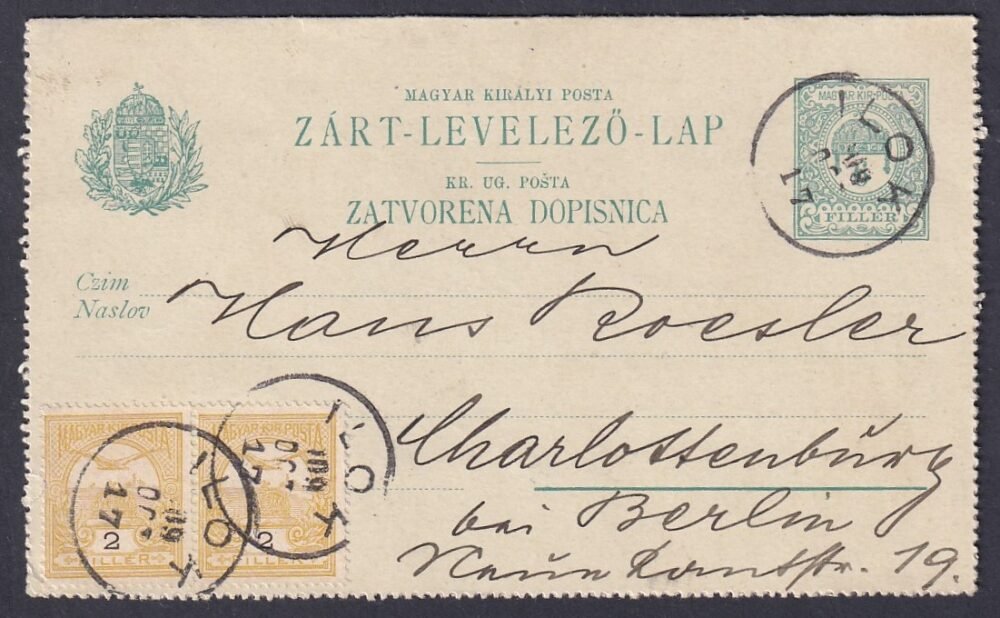 MAGYAR KIRÁLYI POSTA
ZÁRT-LEVELEZŐ-LAP
KR. UG. POŠTA
ZATVORENA DOPISNICA
MAGYAR KIR. POSTA
FILLÉR
ILOK
17
Herrn
Czim
Naslov
Hans Roesler
Charlottenburg
bei Berlin
19.
MAGYAR KIR. POSTA
2
FILLÉR
MAGYAR KIR. POSTA
2
FILLÉR
ILOK
909
17
ILOK
909
17